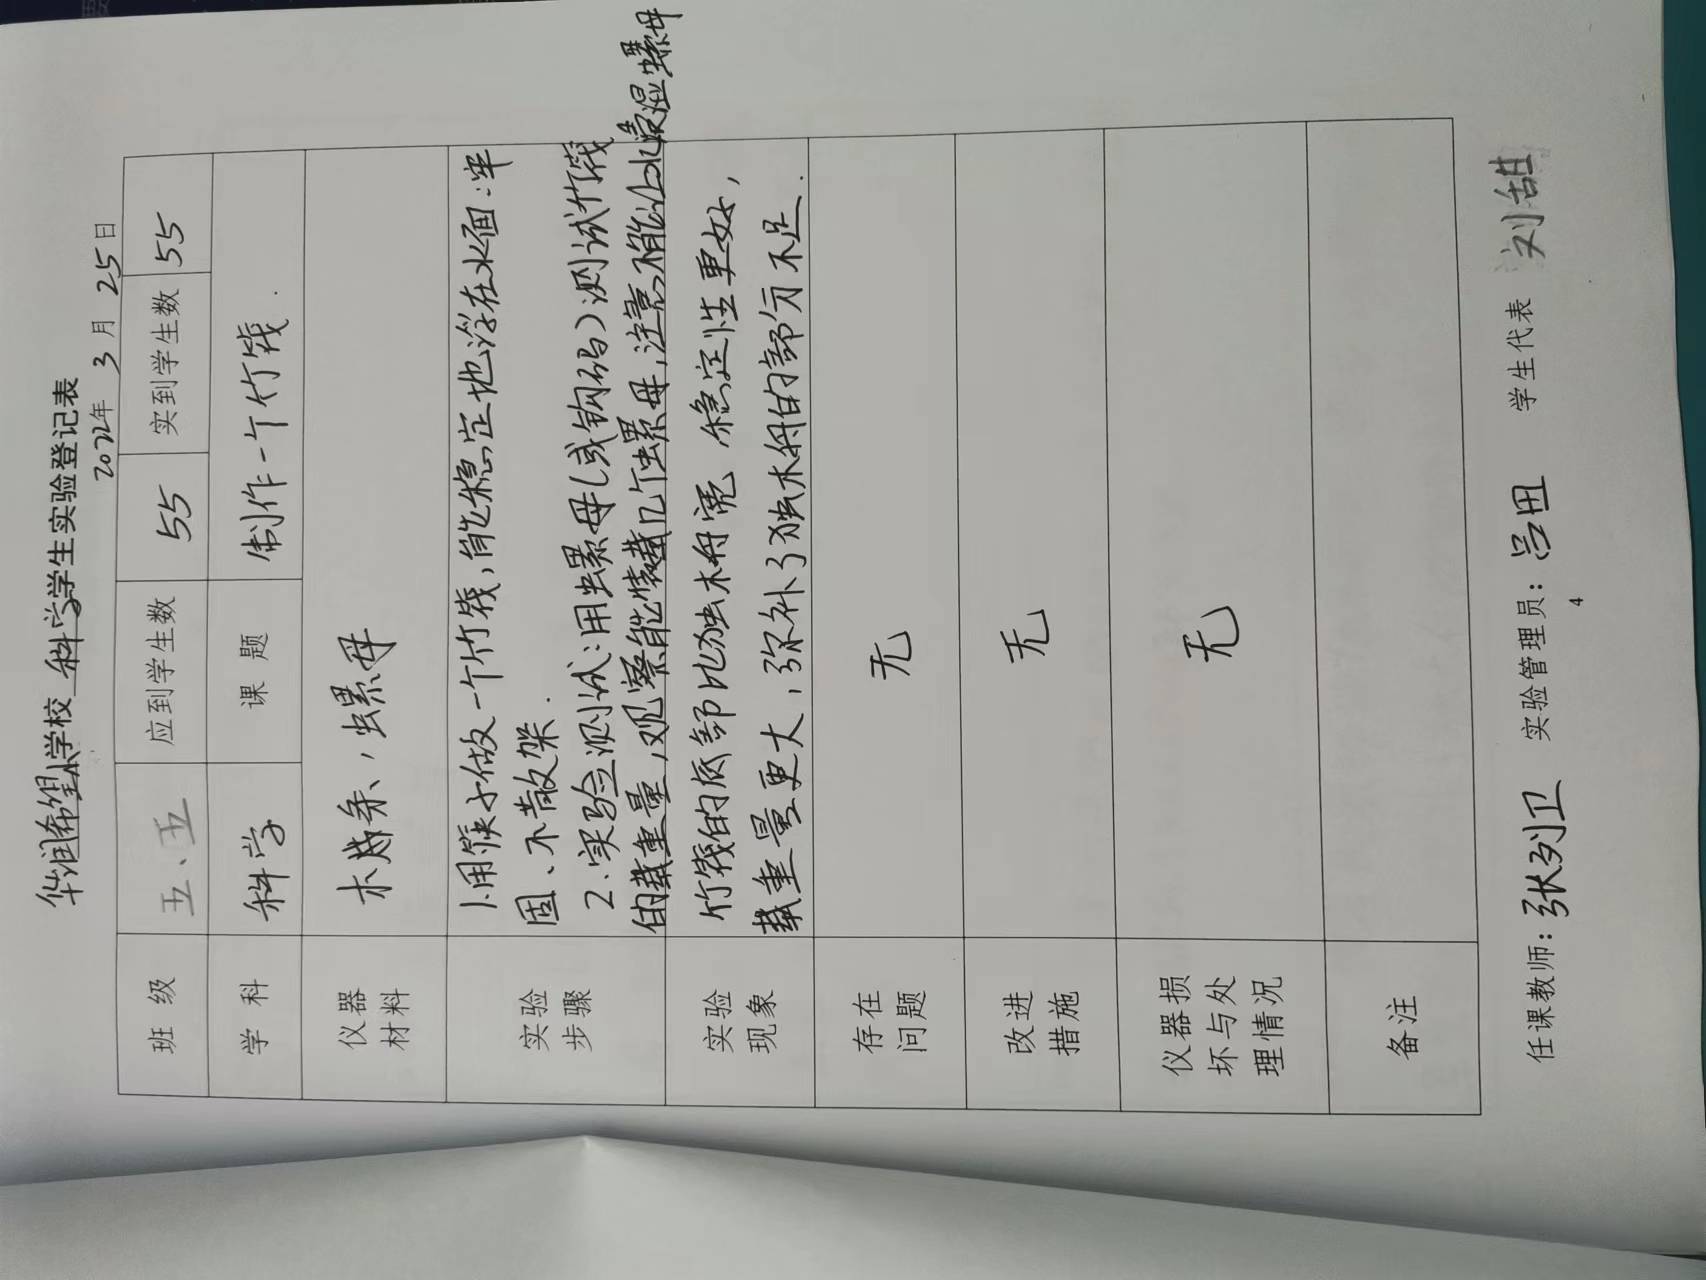 华润希望小学校 科学 学生实验登记表
2022年 3 月 25 日
班 级 五、五 应到学生数 55 实到学生数 55
学 科 科学 课 题 制作一个竹筏.
仪器
材料
木条，螺母
实验
步骤
1.用筷子做一个竹筏，能稳定地浮在水面；牢
固、不散架.
2.实验测试：用螺母（或钩码）测试竹筏
的载重量，观察能装载几个螺母，注意不能让水浸湿螺母
实验
现象
竹筏的底部比独木舟宽，稳定性更好，
载重量更大，弥补了独木舟的部分不足.
存在
问题
无
改进
措施
无
仪器损
坏与处
理情况
无
备注
任课教师：张列卫 实验管理员：吕田 学生代表 刘甜
4